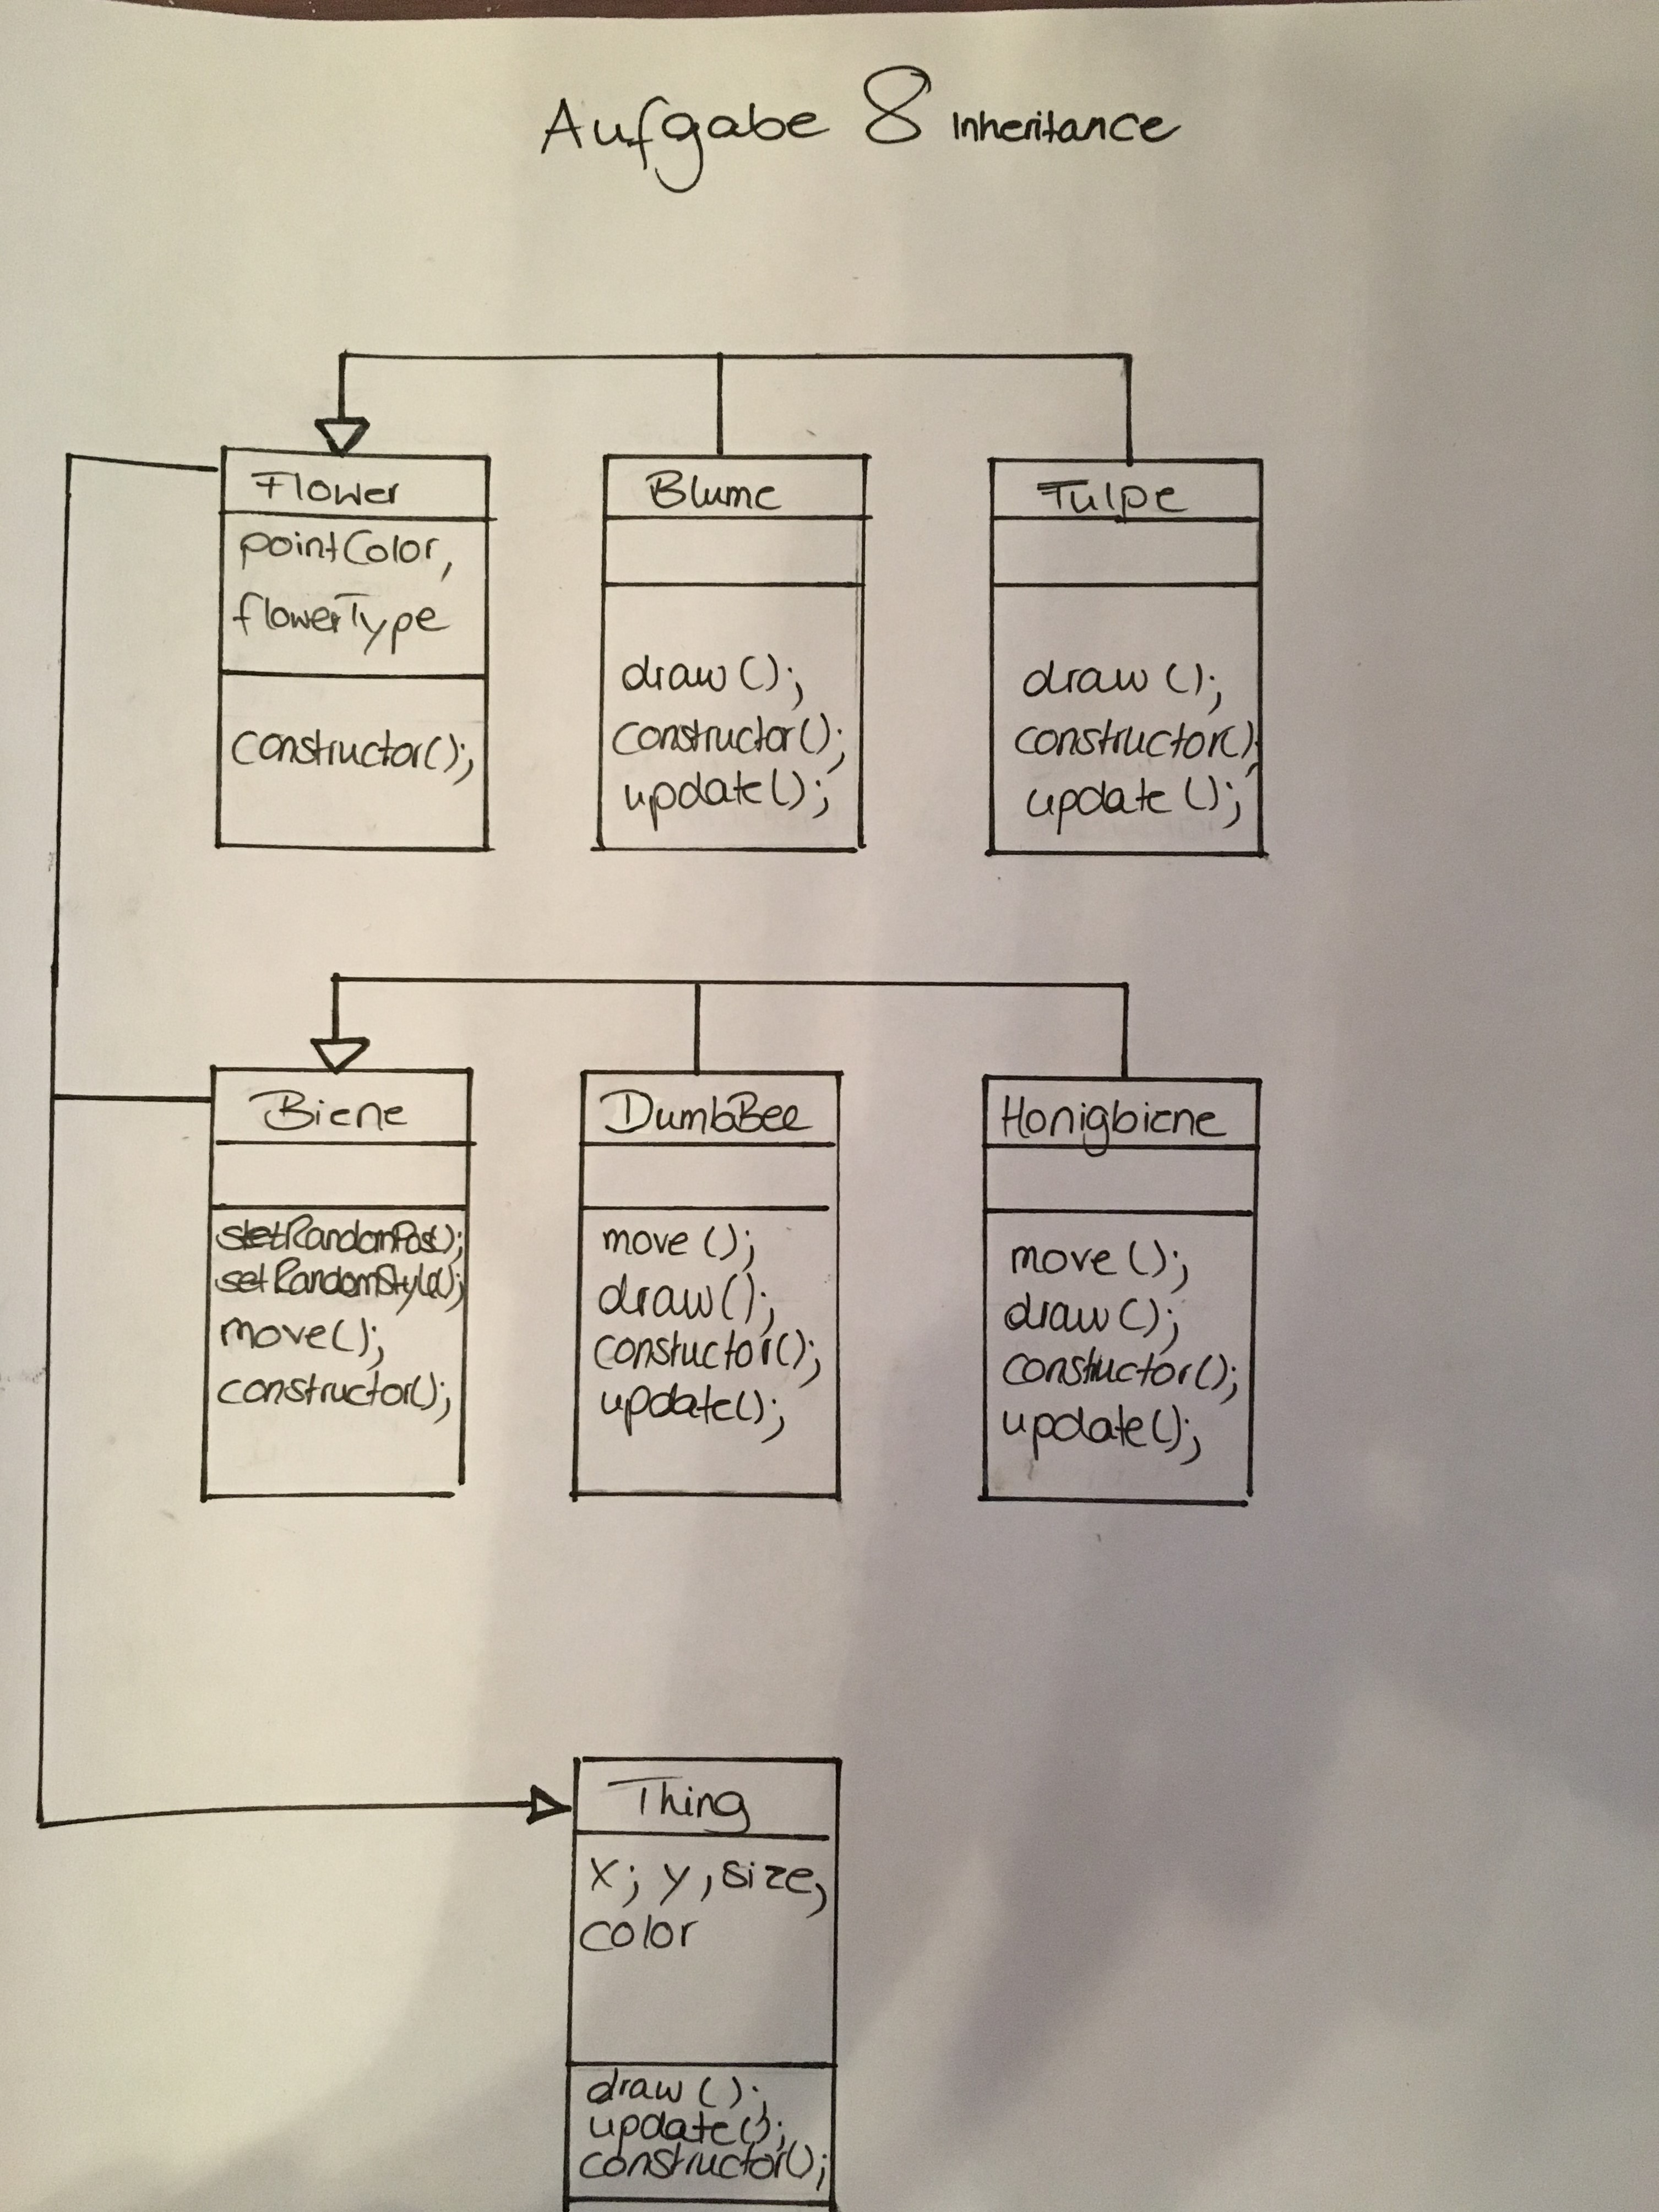 Aufgabe 8 Inheritance
Flower
pointColor,
flowerType
constructor();
Blume
draw();
constructor();
update();
Tulpe
draw();
constructor();
update();
Biene
setRandomPos();
setRandomStyle();
move();
constructor();
DumbBee
move();
draw();
constuctor();
update();
Honigbiene
move();
draw();
constuctor();
update();
Thing
x; y, size,
color
draw();
update();
constructor();